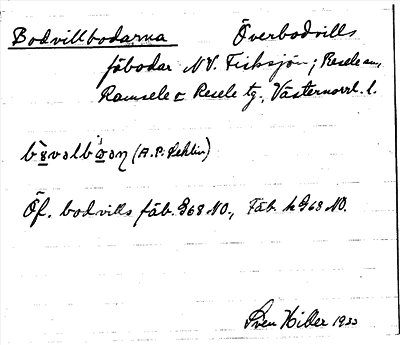 Bodvillbodarna Överbodvills
fäbodar NV. Fisksjön; Resele sn,
Ramsele o Resele tg., Västernorrl. l.
(A.P. Sehlin)
Öf. bodvills fäb. G68 NO., Fäb. k G68 NO.
Sven Hiller 1933